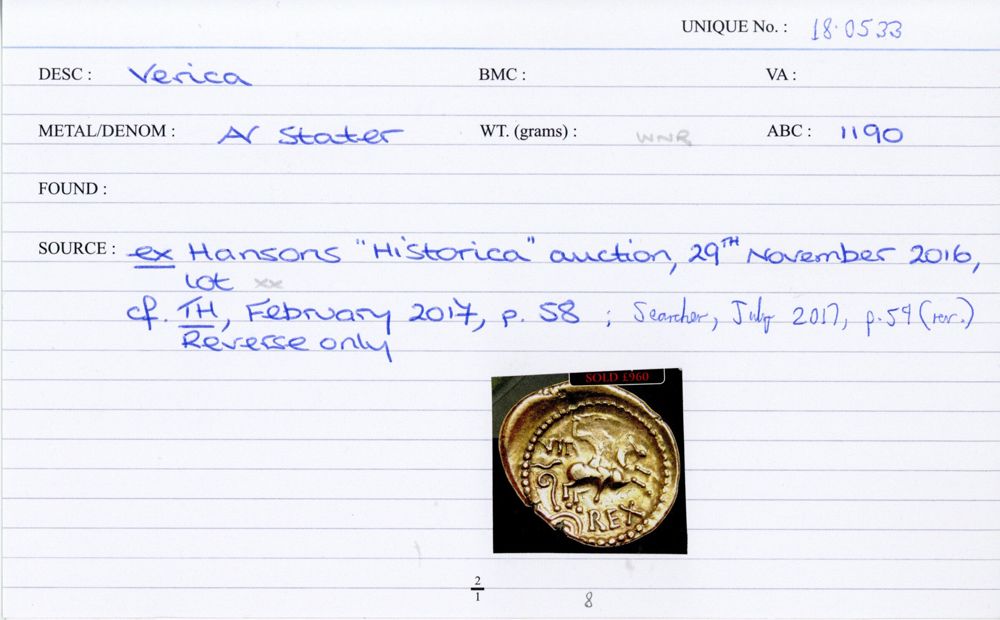 UNIQUE No. : 18.0533
DESC : Verica BMC : VA :
METAL/DENOM : AV Stater WT. (grams) : WNR ABC : 1190
FOUND :
SOURCE : ex Hansons "Historica" auction, 29TH November 2016,
lot xx
cf. TH, February 2017, p. 58 ; Searcher, July 2017, p.59 (rev.)
Reverse only
SOLD £960
VIR
REX
2
1
8